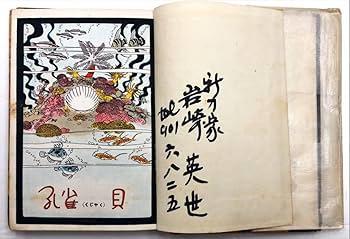 孔雀貝
(くじゃく)
岩崎 英世
tel 901 六八二五